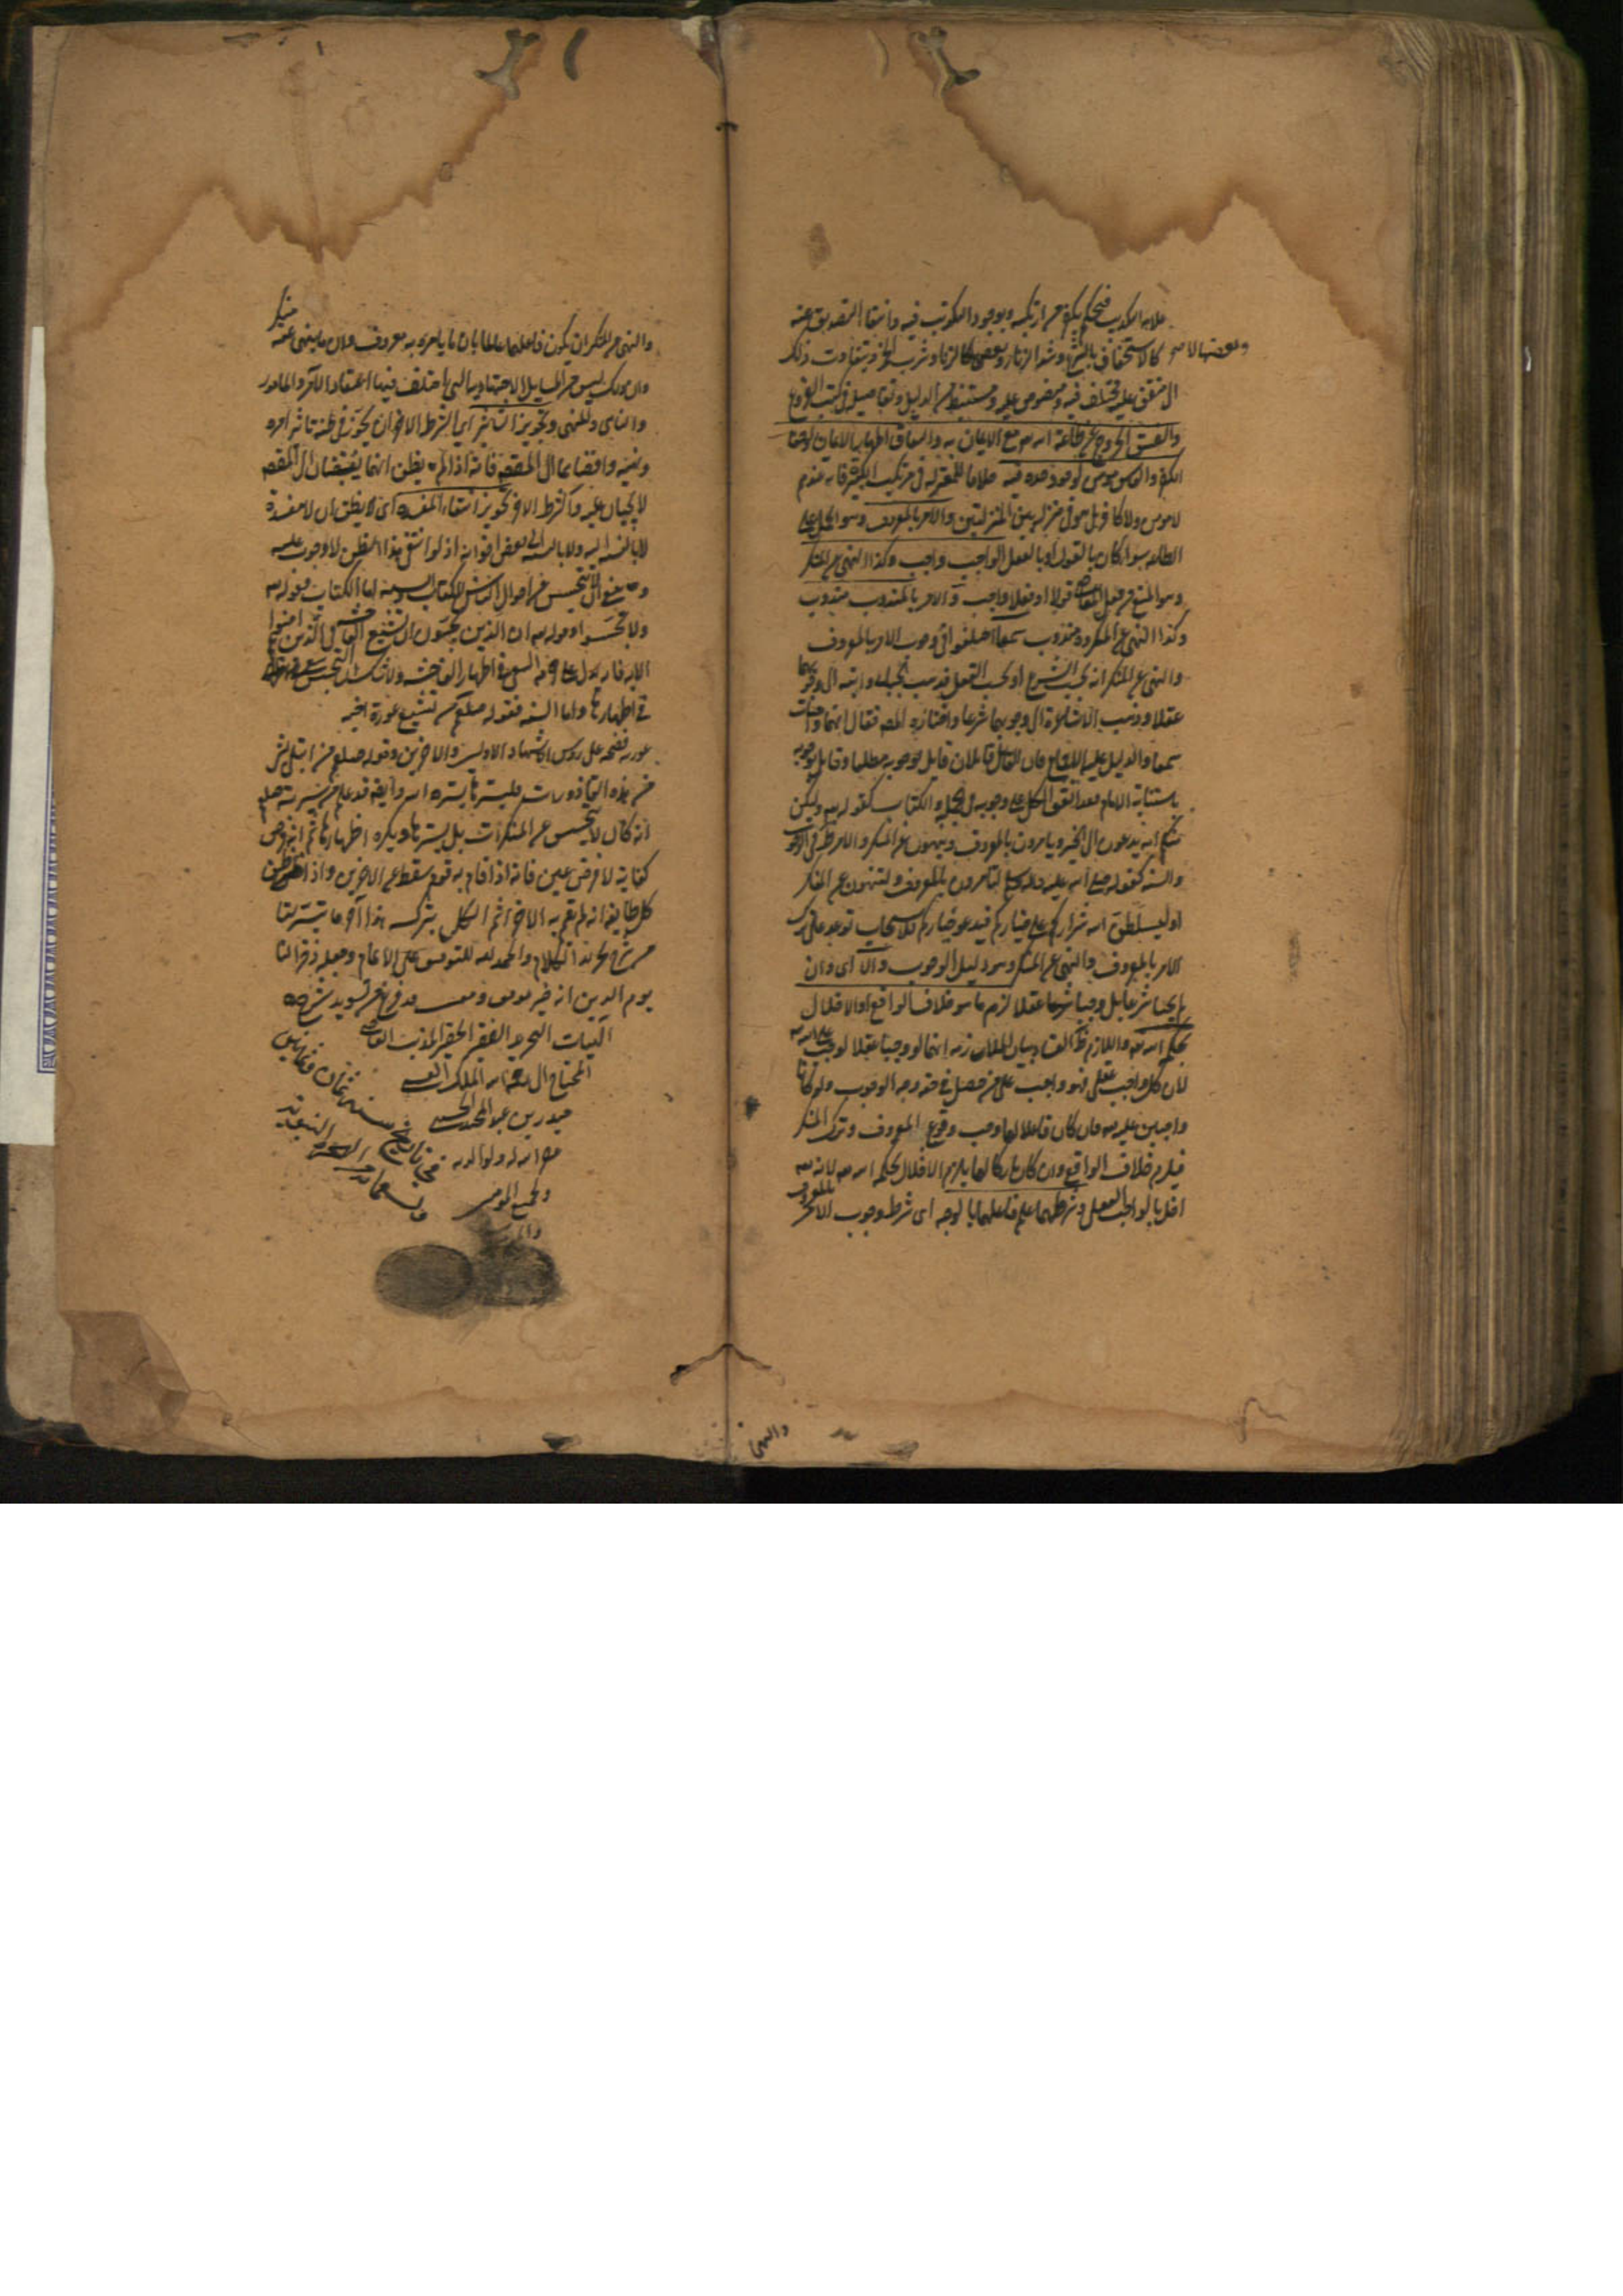 علامة التكذيب فيحكم بكفر من ارتكبه وبوجود التكذيب فيه وانتفاء التصديق عنه
وبعضها لا
كالاستخفاف بالشرع وشد الزنار وبعضها كالزنا وشرب الخمر ويتفاوت ذلك
الى متفق عليه ومختلف فيه ومنصوص عليه ومستنبط من الدليل وتفاصيله فى كتب الفروع
والفسق الخروج عن طاعة الله مع الايمان به والنفاق اظهار الايمان واخفاء
الكفر والفاسق مومن لوجود حده فيه خلافا للمعتزلة فى مرتكب الكبيرة فانه عندهم
لا مومن ولا كافر بل هو فى منزلة بين المنزلتين والامر بالمعروف وهو الحمل على
الطاعة سواء كان بالقول او بالفعل الواجب واجب وكذا النهى عن المنكر
وهو المنع من فعل المعاصى قولا او فعلا واجب والامر بالمندوب مندوب
وكذا النهى عن المكروه مندوب سمعا اختلفوا فى وجوب الامر بالمعروف
والنهى عن المنكر انه بحسب الشرع او بحسب العقل فذهب الجبائى وابنه الى وجوبهما
عقلا وذهب الاشاعرة الى وجوبهما شرعا واختاره المص فقال انهما واجبان
سمعا والدليل عليه الاجماع فان القائل قائلان قايل بوجوبه مطلقا وقايل بوجوبه
باستنابة الامام فقد اتفق الكل على وجوبه فى الجملة والكتاب كقوله ولتكن
منكم امة يدعون الى الخير ويامرون بالمعروف وينهون عن المنكر والامر ظ فى الوجوب
والسنة كقوله صلى الله عليه واله لتامرون بالمعروف ولتنهون عن المنكر
او ليسلطن الله شراركم على خياركم فيدعو خياركم فلا يستجاب توعد على ترك
الامر بالمعروف والنهى عن المنكر وهو دليل الوجوب والا اى وان
لم يجبا شرعا بل وجبا عقلا لزم ما هو خلاف الواقع او الاخلال
بحكم الله واللازم ظ الفساد بيان الملازمة انهما لو وجبا عقلا لوجبا على الله
لان كل واجب عقلى فهو واجب على من حصل فى حقه وجه الوجوب ولو كانا
واجبين عليه فان كان فاعلا لهما وجب وقوع المعروف وترك المنكر
فيلزم خلاف الواقع وان كان تاركا لهما يلزم الاخلال بحكم الله لانه
اخل بالواجب العقلى وشرطهما علم فاعلهما بالوجه اى شرط وجوب الامر بالمعروف
والنهى
والنهى عن المنكر ان يكون فاعلهما عالما بان ما يامر به معروف وان ما ينهى عنه منكر
وان ذلك ليس من المسايل الاجتهادية التى اختلف فيها اعتقاد الآمر والمامور
والناهى والمنهى وتجويز التاثير اى الشرط الاخر ان يجوز فى ظنه تاثير امره
ونهيه وافضائهما الى المقصد فانه اذا لم يظن انهما يفضيان الى المقصد
لا يجبان عليه والشرط الاخر تجويز انتفاء المفسدة اى لا يظن ان لا مفسدة
لا بالنسبة اليه ولا بالنسبة الى بعض اخوانه اذ لو انتفى هذا الظن لا وجوب عليه
التجسس عن احوال الناس للكتاب والسنة اما الكتاب فقوله
ولا تجسسوا وقوله ان الذين يحبون ان تشيع الفاحشة فى الذين امنوا
الاية فانه يدل على حرمة السعى فى اظهار الفاحشة ولا شك ان التجسس سعى
فى اظهارها واما السنة فقوله صلعم من تتبع عورة اخيه
عورته فضحه على رؤس الاشهاد الاولين والاخرين وقوله صلعم من ابتلى بشى
من هذه القاذورات فليسترها بستر الله وايضا قد علم من سيرته صلعم
انه كان لا يتجسس عن المنكرات بل يسترها ويكره اظهارها ثم انه فرض
كفاية لا فرض عين فانه اذا قام به قوم سقط عن الاخرين واذا ظن
كل طايفة انه لم يقم به الاخر اثم الكل بتركه هذا آخر ما تيسر لنا
من شرح تجريد الكلام والحمد لله للتوفيق على الاتمام وجعله ذخرا لنا
يوم الدين انه خير موفق ومعين قد فرغ عن تسويد شرح
الهيات التجريد الفقير الحقير المذنب العاصى
المحتاج الى رحمة الله الملك
حيدر بن عبد
غفر الله له ولوالديه
ولجميع المومنين
فى تاريخ سنة ثمان وثمانين
وتسعمايه من الهجرة النبوية